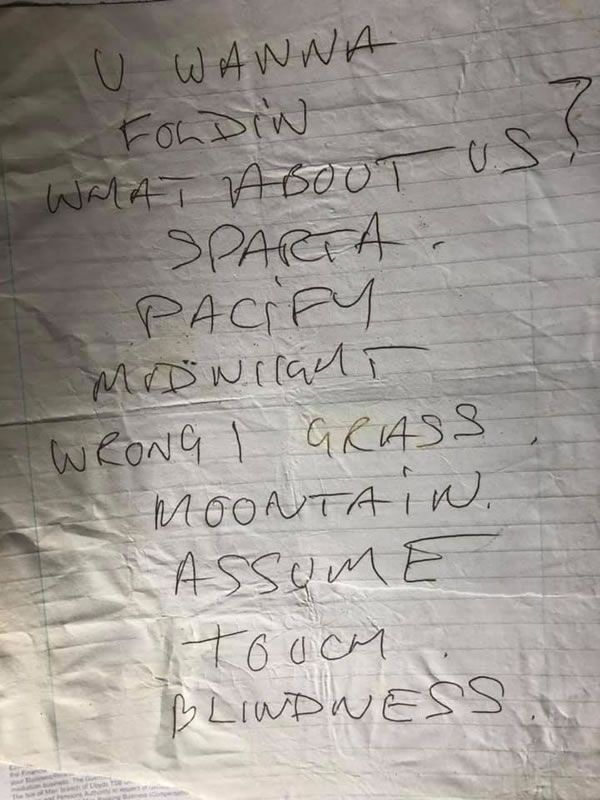 U WANNA
FOLDIN
WHAT ABOUT US?
SPARTA.
PACIFY
MIDNIIGHT
WRONG | GRASS.
MOONTAIN.
ASSUME
TOUCH.
BLINDNESS.